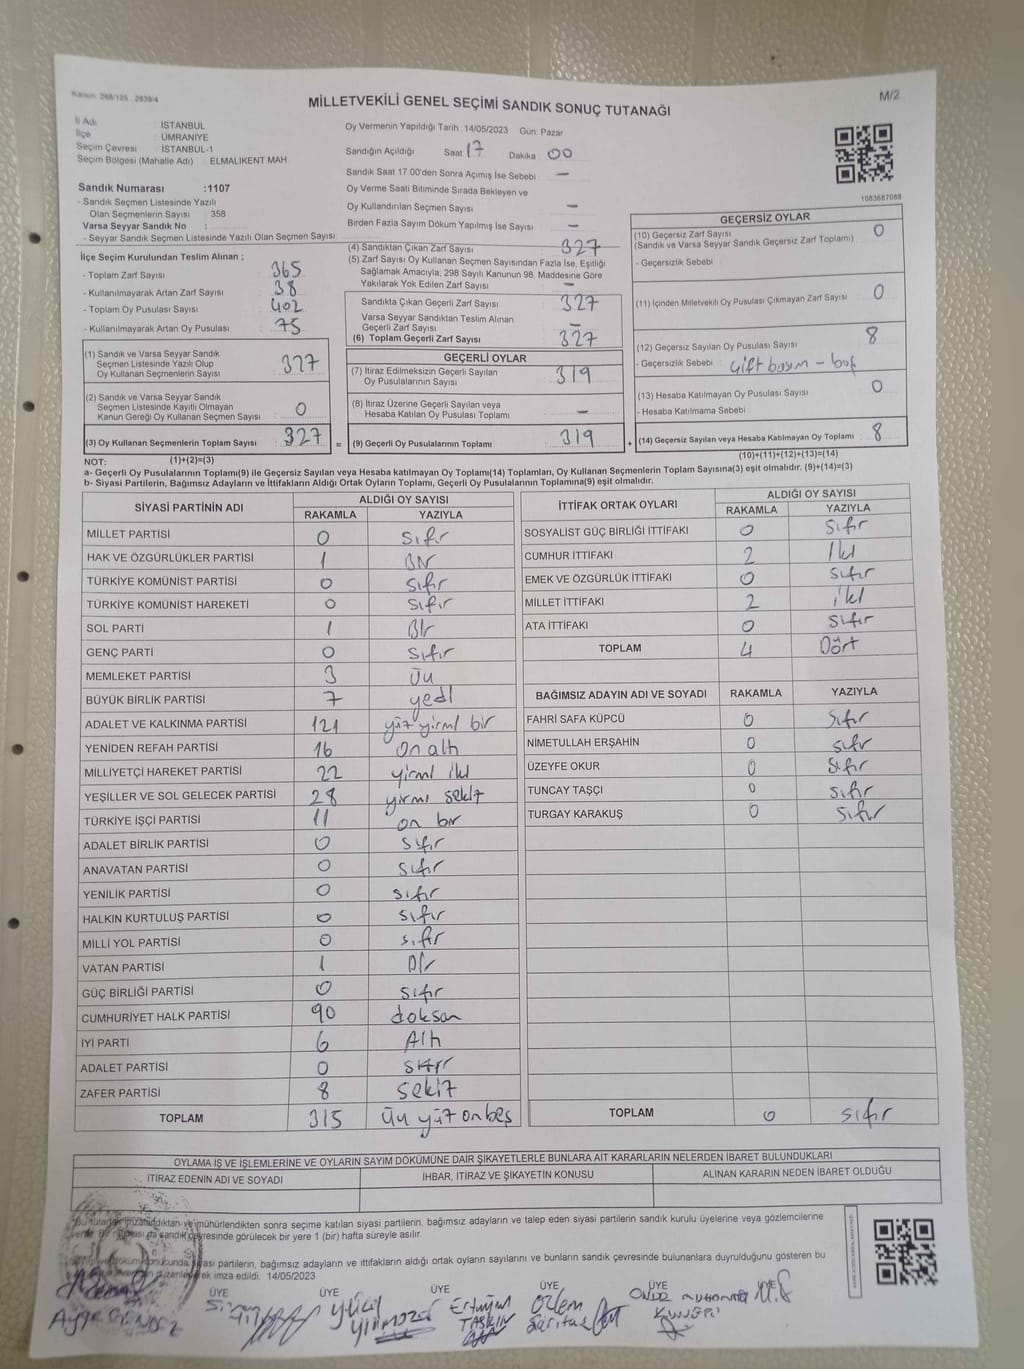 Kanun: 298/105 , 2839/4
M/2
MİLLETVEKİLİ GENEL SEÇİMİ SANDIK SONUÇ TUTANAĞI
İl Adı İSTANBUL
İlçe ÜMRANİYE
Seçim Çevresi İSTANBUL-1
Seçim Bölgesi (Mahalle Adı) : ELMALIKENT MAH
Sandık Numarası :1107
- Sandık Seçmen Listesinde Yazılı
Olan Seçmenlerin Sayısı : 358
Varsa Seyyar Sandık No :
- Seyyar Sandık Seçmen Listesinde Yazılı Olan Seçmen Sayısı:
İlçe Seçim Kurulundan Teslim Alınan ;
- Toplam Zarf Sayısı : 365
- Kullanılmayarak Artan Zarf Sayısı : 38
- Toplam Oy Pusulası Sayısı : 402
- Kullanılmayarak Artan Oy Pusulası : 75
(1) Sandık ve Varsa Seyyar Sandık
Seçmen Listesinde Yazılı Olup
Oy Kullanan Seçmenlerin Sayısı : 327
(2) Sandık ve Varsa Seyyar Sandık
Seçmen Listesinde Kayıtlı Olmayan
Kanun Gereği Oy Kullanan Seçmen Sayısı : 0
(3) Oy Kullanan Seçmenlerin Toplam Sayısı : 327 =
Oy Vermenin Yapıldığı Tarih :14/05/2023 Gün: Pazar
Sandığın Açıldığı Saat: 17 Dakika : 00
Sandık Saat 17.00'den Sonra Açımış İse Sebebi : —
Oy Verme Saati Bitiminde Sırada Bekleyen ve
Oy Kullandırılan Seçmen Sayısı : —
Birden Fazla Sayım Döküm Yapılmış İse Sayısı : —
(4) Sandıktan Çıkan Zarf Sayısı : 327
(5) Zarf Sayısı Oy Kullanan Seçmen Sayısından Fazla İse, Eşitliği
Sağlamak Amacıyla; 298 Sayılı Kanunun 98. Maddesine Göre
Yakılarak Yok Edilen Zarf Sayısı : —
Sandıkta Çıkan Geçerli Zarf Sayısı : 327
Varsa Seyyar Sandıktan Teslim Alınan
Geçerli Zarf Sayısı : —
(6) Toplam Geçerli Zarf Sayısı : 327
GEÇERLİ OYLAR
(7) İtiraz Edilmeksizin Geçerli Sayılan
Oy Pusulalarının Sayısı : 319
(8) İtiraz Üzerine Geçerli Sayılan veya
Hesaba Katılan Oy Pusulası Toplamı : —
(9) Geçerli Oy Pusulalarının Toplamı : 319 +
1083687088
GEÇERSİZ OYLAR
(10) Geçersiz Zarf Sayısı : 0
(Sandık ve Varsa Seyyar Sandık Geçersiz Zarf Toplamı)
- Geçersizlik Sebebi :
(11) İçinden Milletvekili Oy Pusulası Çıkmayan Zarf Sayısı : 0
(12) Geçersiz Sayılan Oy Pusulası Sayısı : 8
- Geçersizlik Sebebi : Çift basım - boş
(13) Hesaba Katılmayan Oy Pusulası Sayısı : 0
- Hesaba Katılmama Sebebi :
(14) Geçersiz Sayılan veya Hesaba Katılmayan Oy Toplamı : 8
NOT: (1)+(2)=(3) (10)+(11)+(12)+(13)=(14)
a- Geçerli Oy Pusulalarının Toplamı(9) ile Geçersiz Sayılan veya Hesaba katılmayan Oy Toplamı(14) Toplamları, Oy Kullanan Seçmenlerin Toplam Sayısına(3) eşit olmalıdır. (9)+(14)=(3)
b- Siyasi Partilerin, Bağımsız Adayların ve İttifakların Aldığı Ortak Oyların Toplamı, Geçerli Oy Pusulalarının Toplamına(9) eşit olmalıdır.
SİYASİ PARTİNİN ADI ALDIĞI OY SAYISI
RAKAMLA YAZIYLA
MİLLET PARTİSİ 0 sıfır
HAK VE ÖZGÜRLÜKLER PARTİSİ 1 Bir
TÜRKİYE KOMÜNİST PARTİSİ 0 sıfır
TÜRKİYE KOMÜNİST HAREKETİ 0 sıfır
SOL PARTİ 1 Bir
GENÇ PARTİ 0 sıfır
MEMLEKET PARTİSİ 3 Üç
BÜYÜK BİRLİK PARTİSİ 7 yedi
ADALET VE KALKINMA PARTİSİ 121 yüz yirmi bir
YENİDEN REFAH PARTİSİ 16 on altı
MİLLİYETÇİ HAREKET PARTİSİ 22 yirmi iki
YEŞİLLER VE SOL GELECEK PARTİSİ 28 yirmi sekiz
TÜRKİYE İŞÇİ PARTİSİ 11 on bir
ADALET BİRLİK PARTİSİ 0 sıfır
ANAVATAN PARTİSİ 0 sıfır
YENİLİK PARTİSİ 0 sıfır
HALKIN KURTULUŞ PARTİSİ 0 sıfır
MİLLİ YOL PARTİSİ 0 sıfır
VATAN PARTİSİ 1 Bir
GÜÇ BİRLİĞİ PARTİSİ 0 sıfır
CUMHURİYET HALK PARTİSİ 90 doksan
İYİ PARTİ 6 Altı
ADALET PARTİSİ 0 sıfır
ZAFER PARTİSİ 8 sekiz
TOPLAM 315 Üç yüz on beş
İTTİFAK ORTAK OYLARI ALDIĞI OY SAYISI
RAKAMLA YAZIYLA
SOSYALİST GÜÇ BİRLİĞİ İTTİFAKI 0 sıfır
CUMHUR İTTİFAKI 2 İki
EMEK VE ÖZGÜRLÜK İTTİFAKI 0 sıfır
MİLLET İTTİFAKI 2 iki
ATA İTTİFAKI 0 sıfır
TOPLAM 4 Dört
BAĞIMSIZ ADAYIN ADI VE SOYADI RAKAMLA YAZIYLA
FAHRİ SAFA KÜPCÜ 0 sıfır
NİMETULLAH ERŞAHİN 0 sıfır
ÜZEYFE OKUR 0 sıfır
TUNCAY TAŞÇI 0 sıfır
TURGAY KARAKUŞ 0 sıfır
TOPLAM 0 sıfır
OYLAMA İŞ VE İŞLEMLERİNE VE OYLARIN SAYIM DÖKÜMÜNE DAİR ŞİKAYETLERLE BUNLARA AİT KARARLARIN NELERDEN İBARET BULUNDUKLARI
İTİRAZ EDENİN ADI VE SOYADI İHBAR, İTİRAZ VE ŞİKAYETİN KONUSU ALINAN KARARIN NEDEN İBARET OLDUĞU
"Bu tutanak imzalandıktan ve mühürlendikten sonra seçime katılan siyasi partilerin, bağımsız adayların ve talep eden siyasi partilerin sandık kurulu üyelerine veya gözlemcilerine
verilir. Bir sandık çevresinde görülecek bir yere 1 (bir) hafta süreyle asılır.
siyasi partilerin, bağımsız adayların ve ittifakların aldığı ortak oyların sayılarını ve bunların sandık çevresinde bulunanlara duyrulduğunu gösteren bu
düzenlenerek imza edildi. 14/05/2023
ÜYE ÜYE ÜYE ÜYE ÜYE ÜYE
Yılmaz Ertuğrul Özlem
TAŞKIN Sarıtaş
Ayşe